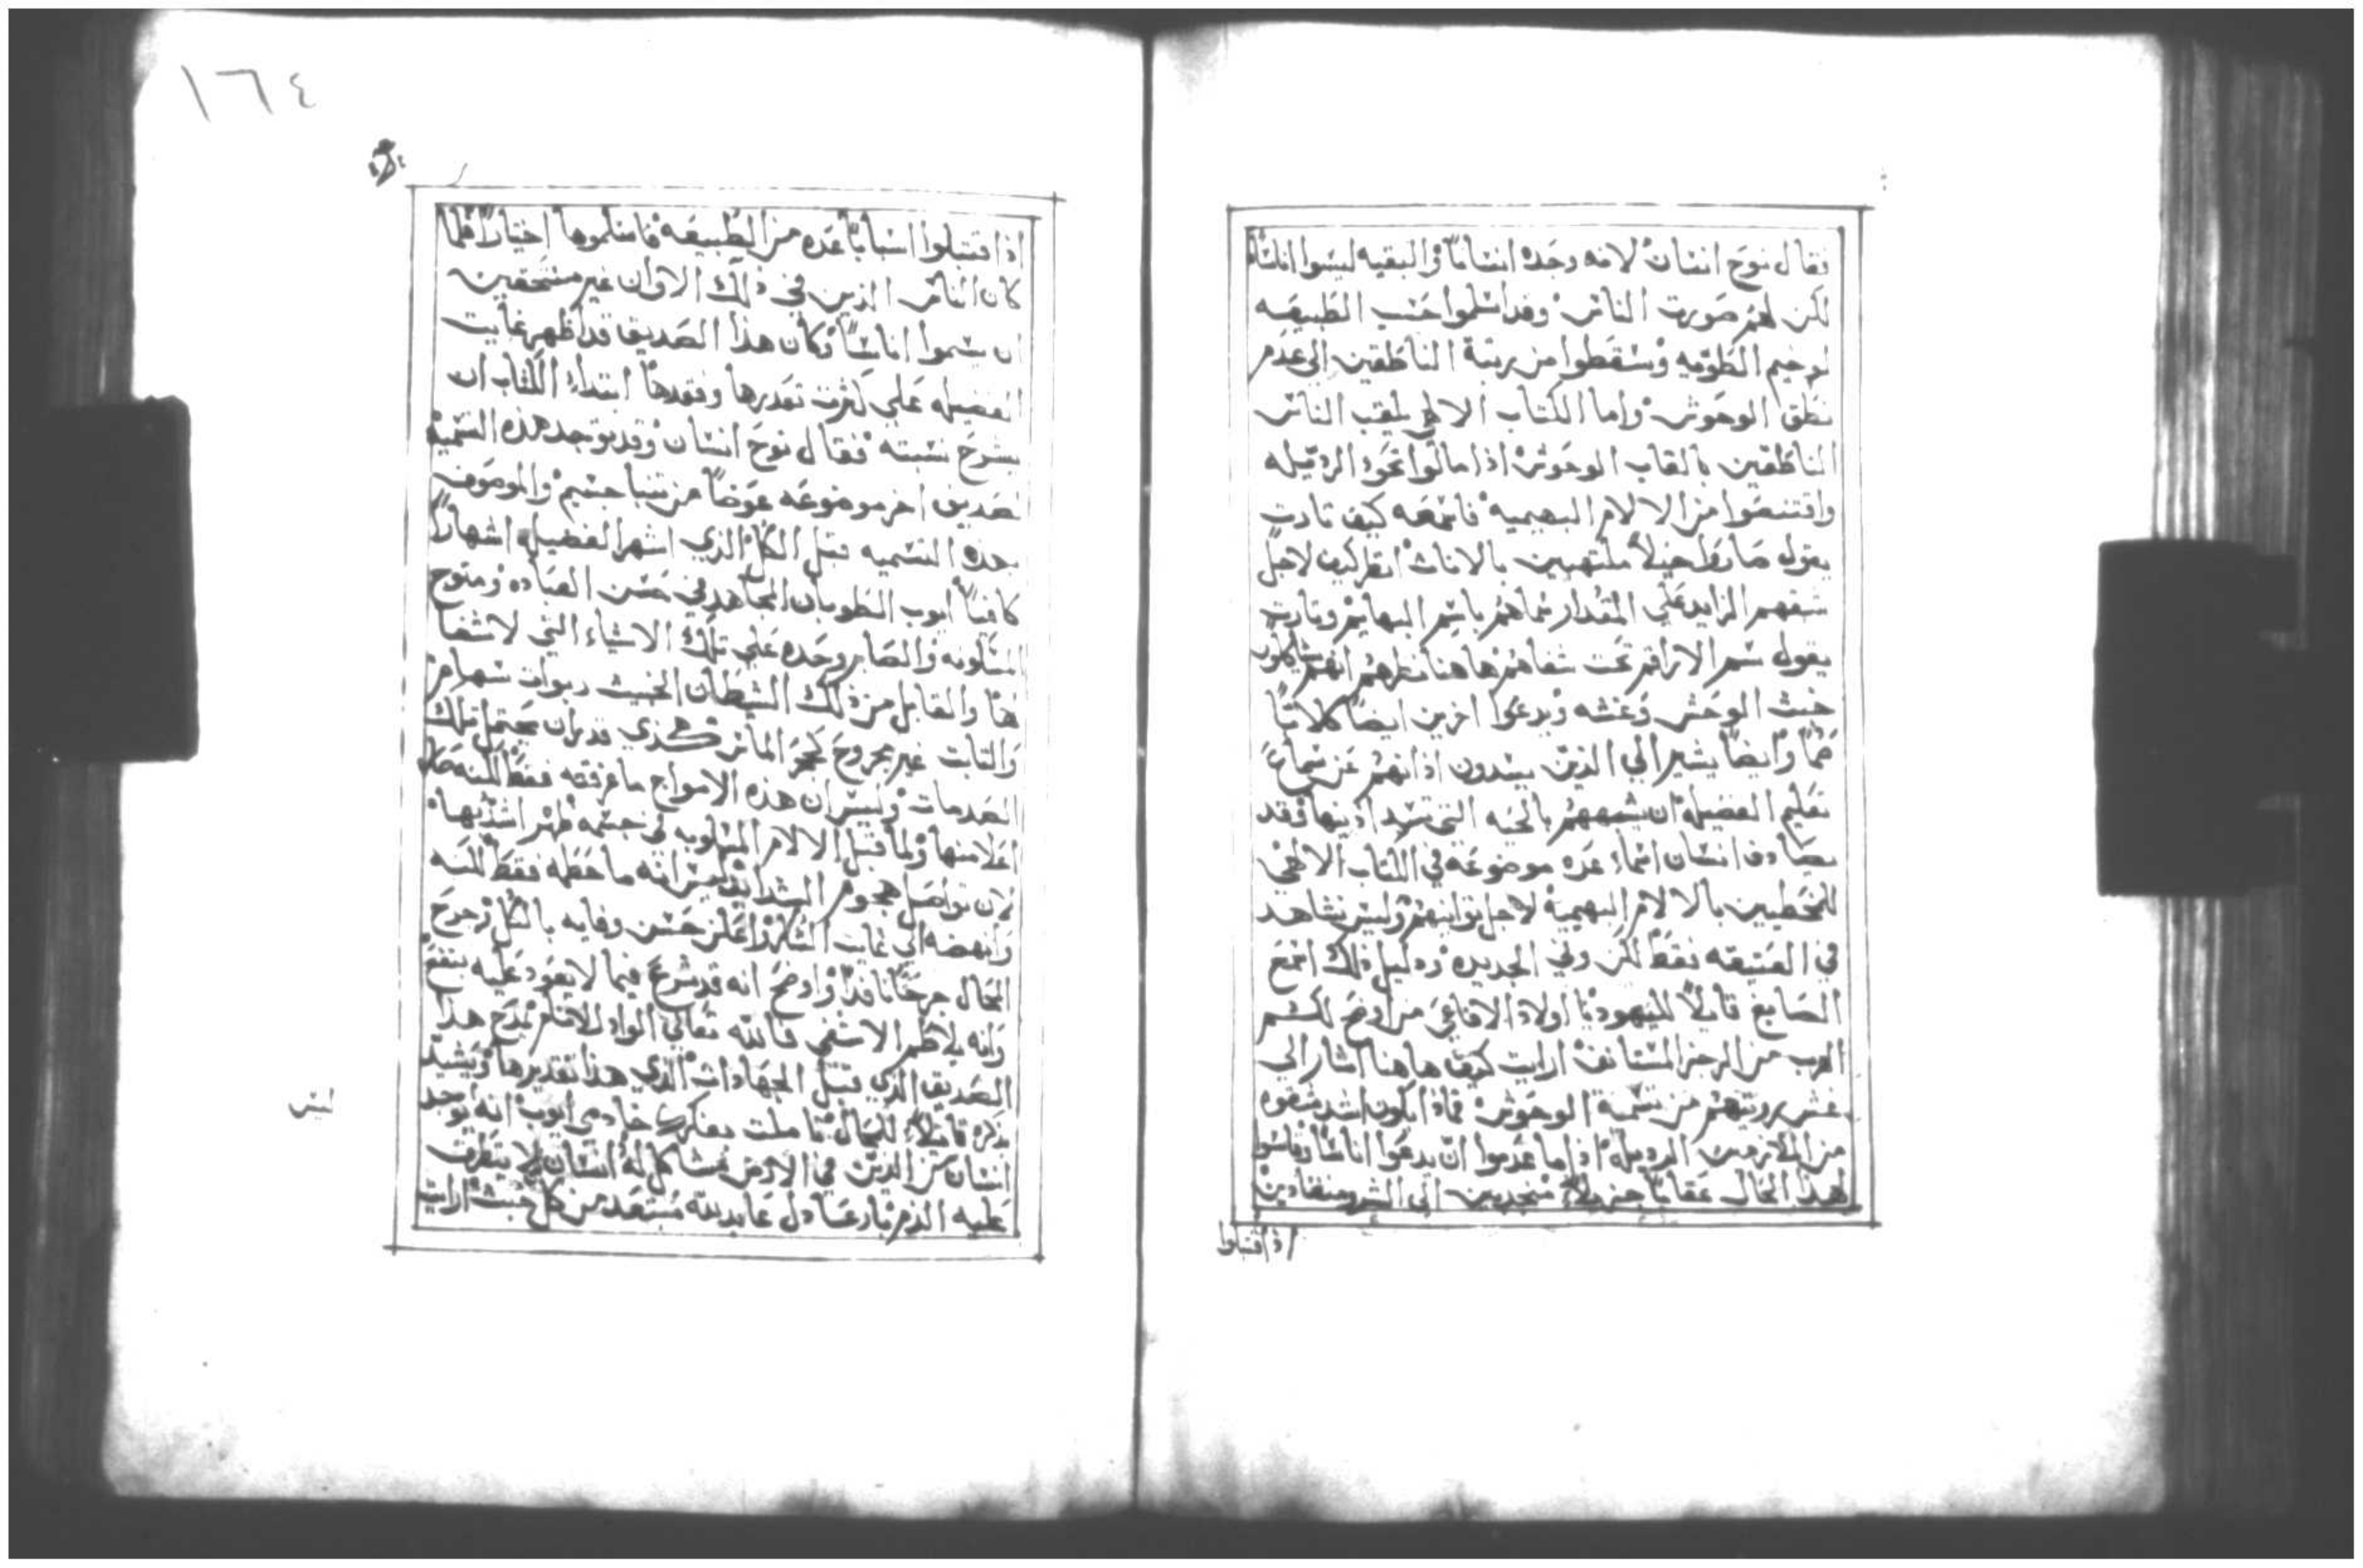 فقال نوح انسان لانه وحده انساناً والبقيه ليسوا اناسًا
لكن لهم صورت الناس وقد اسلموا حسب الطبيعه
وسقطوا من رتبة الناطقين الى عدم
نطق الوحوش واما الكتاب الالهي يلقب الناس
الناطقين بالقاب الوحوش اذا مالوا نحو الرديله
واقتنصوا من الالام البهيميه فاسمعه كيف تارت
يقول صاروا خيلاً ملتهبين بالاناث انظر كيف لاجل
شبقهم الزايد على المقدار سماهم باسم البهايم وتارت
يقول سم الاراقم تحت شفاهم هاهنا انهم شاكلون
خبث الوحش وغشه ويدعوا اخرين ايضاً كلاباً
صماً وايضاً يشير الي الذين يسدون اذانهم عن سماع
تعليم الفضيله ان شبههم بالحيه التي تسد اذنيها وقد
يصادف انسان اسماء عده موضوعه في الكتاب الالهي
للمنحطين بالالام البهيمية لاجل توانيهم وليس نشاهد
في العتيقه فقط لكن وفي الجديده ودليل ذلك اسمع
الصابغ قايلاً لليهود يا اولاد الافاعي من اوضح لكم
الهرب من الرجز المستانف ارايت كيف هاهنا اشار الي
غش رويتهم من تسمية الوحوش فماذا يكون اشد شقوه
من الملازمين الرديله اذا ما عدموا ان يدعوا اناسًا وقاسوا
هذا الحال عقاباً جزيلاً منجدبين الى الشر ومنقادين
اذا قتبلوا
١٦٤
اذا قتبلوا اسباباً عده من الطبيعه فاسلموها اختياراً فلما
كان الناس الذين في ذلك الاوان غير مستحقين
ان يسموا اناسًا وكان هذا الصديق قد اظهر غايت
الفضيله على كثرت تعدرها وفقدها ابتداء الكتاب ان
يشرح نسبته فقال نوح انسان وقد توجد هذه التسمية
لصديق اخر موضوعه عوضاً من والموصوف
بهذه التسميه قبل الكل الذي اشهر الفضيله اشهاراً
كافياً ايوب الطوبان المجاهد في حسن العباده ومتوج
المسكونه والصابر وحده على تلك الاشياء التي لا شفا
لها والقابل من ذلك الشيطان الخبيث ربوات سهام
والتابت غير مجروح كحجر الماس هكذي قد ران يحتمل تلك
الصدمات وليس ان هذه الامواج ما غرقته فقط لكنه صار
اعلا منها ولما قبل الالام المسكونه في جسمه ظهر اشد بها
لان تواصل هجوم الشدايد ليس انه ما حفظه فقط لكنه
وانهضه الى غايت الشكر واعلن حسن وفايه بالكل وجرح
المحال جرحاً نافداً واوضح انه قد شرع فيما لا يعود عليه بنفع
وانه يلاطم الاسفى فالله تعالى الواد للانام يمدح هذا
الصديق الذي قبل الجهادات الذي هذا تقديرها ويشيد
ذكره قايلاً للمحال تاملت بفكرك خادمي ايوب انه توجد
انسان من الذين في الارض مشاكل له انسان لا يتطرق
عليه الذم بار عادل عابد لله مبتعد من كل خبث ارايت